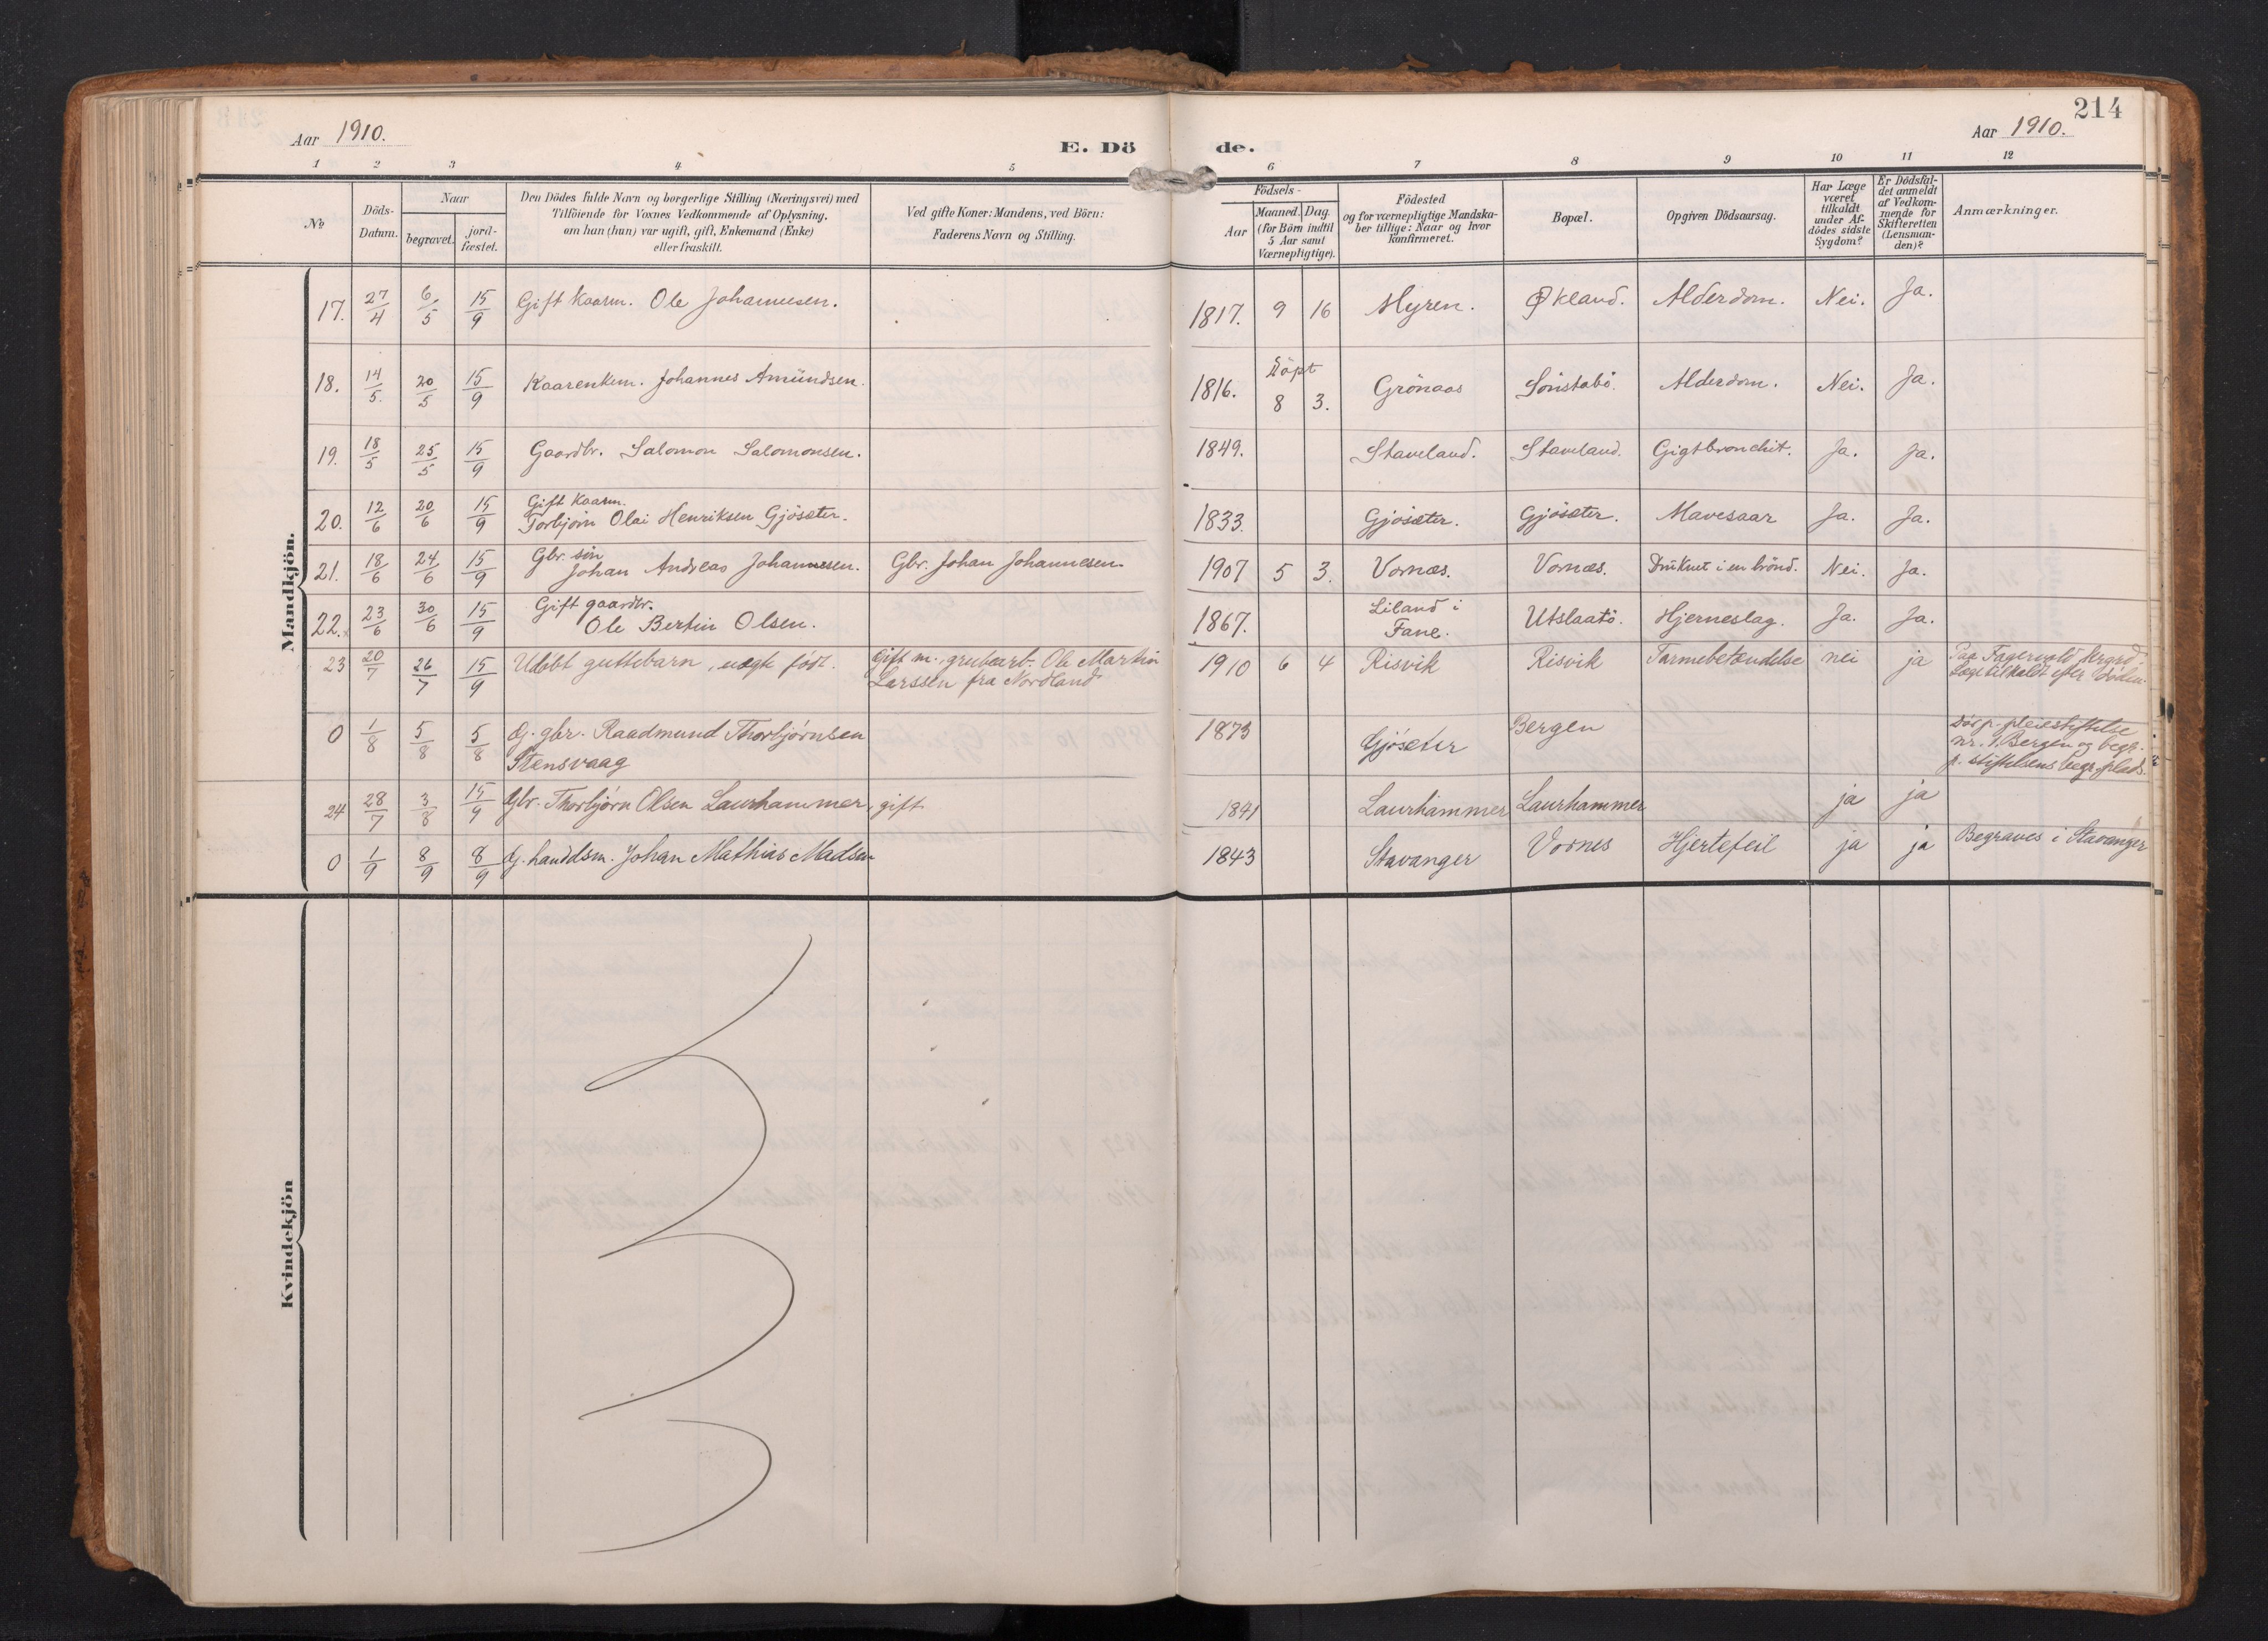 214
Aar 1910.
E. Döde.
Aar 1910.
1 2 3 4 5 6 7 8 9 10 11 12
No
Döds-Datum.
Naar
begravet.
jordfæstet.
Den Dödes fulde Navn og borgerlige Stilling (Næringsvei) med
Tilföiende for Voxnes Vedkommende af Oplysning,
om han (hun) var ugift, gift, Enkemand (Enke)
eller fraskilt.
Ved gifte Koner: Mandens, ved Börn:
Faderens Navn og Stilling.
Födsels-
Aar
Maaned. Dag.
(for Börn indtil
5 Aar samt
Værnepligtige).
Födested
og for værnepligtige Mandska-
ber tillige: Naar og hvor
konfirmeret.
Bopæl.
Opgiven Dödsaarsag.
Har Læge
været
tilkaldt
under Af-
dödes sidste
Sygdom?
Er Dödsfal-
det anmeldt
af Vedkom-
mende for
Skifteretten
(Lensman-
den)?
Anmærkninger.
Mandkjön.
17. 27/4 6/5 15/9 Gift kaarm. Ole Johannesen. 1817. 9 16 Myren. Økland. Alderdom. Nei. Ja.
18. 14/5. 20/5 15/9 Kaarenkem. Johannes Amundsen. 1816. Döpt 8 3. Grönaas Sönstabö. Alderdom. Nei. Ja.
19. 18/5 25/5 15/9 Gaardbr. Salomon Salomonsen. 1849. Staveland. Staveland. Gigtbronchit. Ja. Ja.
20. 12/6 20/6 15/9 Gift Kaarm.
Torbjörn Olai Henriksen Gjösæter. 1833. Gjösæter. Gjösæter. Mavesaar Ja. Ja.
21. 18/6 24/6 15/9 Gbr. sön
Johan Andreas Johannesen. Gbr. Johan Johannesen. 1907 5 3. Vornæs. Vornæs. Druknet i en brönd. Nei. Ja.
22. 23/6 30/6 15/9 Gift gaardbr.
Ole Bertin Olsen. 1867. Liland i
Fane. Utslaatö. Hjerneslag. Ja. Ja.
23 20/7 26/7 15/9 Udöbt guttebarn, uægte født. Gift m., grubearb. Ole Martin
Larssen fra Nordland 1910 6 4 Risvik Risvik Tarmebetændelse nei ja Paa Fagervold krgrd.
Læge tilkaldt efter döden.
0 1/8 5/8 5/8 G. gbr. Raadmund Thorbjørnsen
Stensvaag 1873 Gjöseter Bergen Dör p. pleiestiftelse
nr. 1, Bergen og begr.
p. stiftelsens begr.plads.
24 28/7 3/8 15/9 Gbr. Thorbjørn Olsen Laurhammer, gift 1841 Laurhammer Laurhammer ja ja
0 1/9 8/9 8/9 G. handdsm. Johan Mathias Madsen 1843 Stavanger Vornes Hjertefeil ja ja Begraves i Stavanger
Kvindekjön